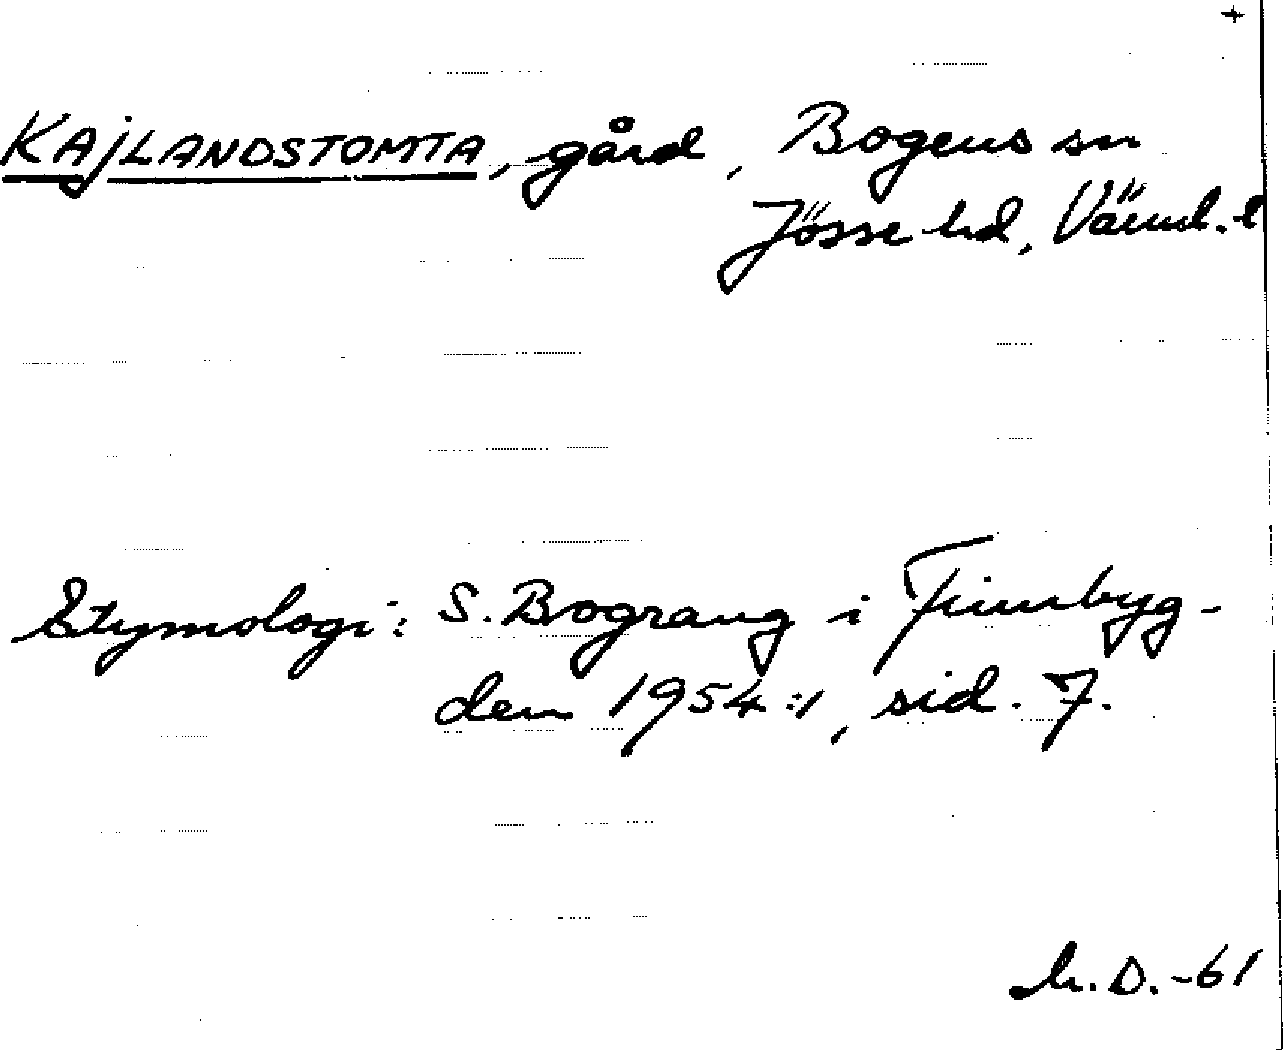 +
KAJLANDSTOMTA, gård, Bogens sn
Jösse hd, Värml. l
Etymologi: S. Bograng i Finnbyg-
den 1954:1, sid. 7.
h. D. -61